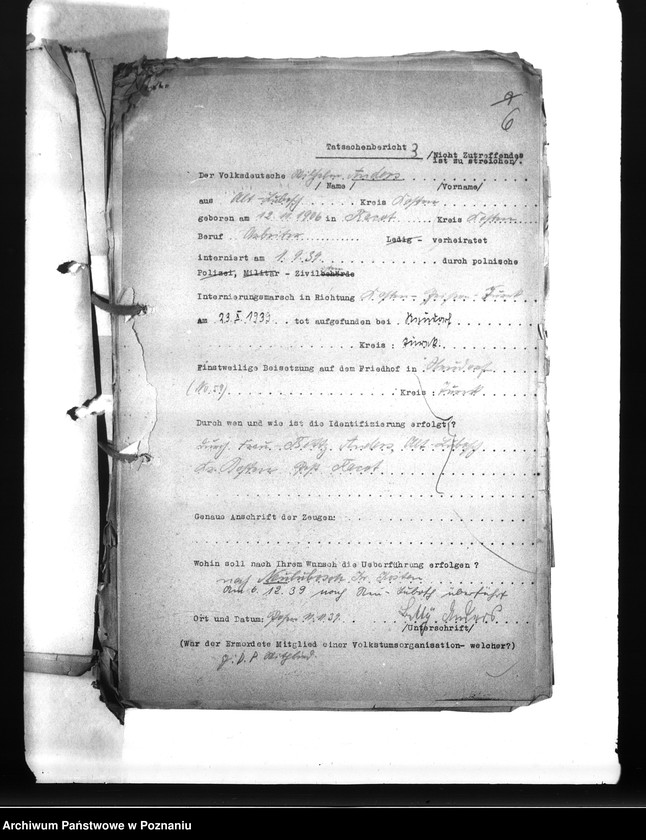 6
Tatsachenbericht 3 /Nicht Zutreffendes
ist zu streichen/.
Der Volksdeutsche Wilhelm Anders
/ Name / /Vorname/
aus Alt-Lubosch Kreis Kosten
geboren am 12. 11. 1906 in Kreis Kosten
Beruf Arbeiter Ledig - verheiratet
interniert am 1.9.39. durch polnische
Polizei, Militär - Zivilbehörde
Internierungsmarsch in Richtung Kosten - Turek
Am 23.X.1939 tot aufgefunden bei
Kreis: Turek
Einstweilige Beisetzung auf dem Friedhof in
(No. 59) Kreis: Turek
Durch wen und wie ist die Identifizierung erfolgt?
Durch Frau Anders, Alt Lubosch
Kr. Kosten Post
Genaue Anschrift der Zeugen:
Wohin soll nach Ihrem Wunsch die Ueberführung erfolgen?
nach Kr. Kosten
Am 6.12.39 nach Lubosch überführt
Ort und Datum: Posen 39. Anders
/Unterschrift/
(War der Ermordete Mitglied einer Volkstumsorganisation- welcher?)
Mitglied
Archiwum Państwowe w Poznaniu